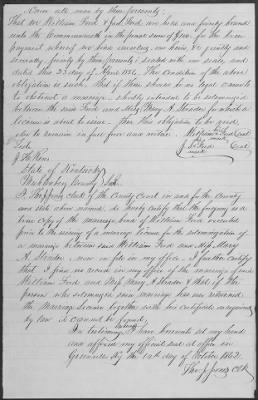 Know all men by these presents:
That we William Ford & Jno. Ford are held and firmly bound
unto the Commonwealth in the penal sum of $100. for the true
payment whereof we bind ourselves, our heirs &c jointly and
severally firmly by these presents; sealed with our seals and
dated this 23 day of April 1852. The condition of the above
obligation is such, that if there should be no legal cause to
to obstruct a marriage shortly intended to be solemnized
between the said Ford and Miss Mary A. for which a
license is about to issue. then this obligation to be void
else to remain in full force and virtue. William Ford Seal
Teste Jno Ford Seal
State of Kentucky
Muhlenberg County Sct.
I Clerk of the County Court in and for the County
and State above named, do hereby certify that the foregoing is a
true copy of the marriage bond of William Ford executed
prior to the issuing of a marriage license for the solemnization of
a marriage between said William Ford and Miss Mary
A. now on file in my office. I further certify
that I find no record in my office of the marriage of said
William Ford and Miss Mary A. & that if the
person who solemnized said marriage has ever returned
the Marriage License together with his certificate as required
by law it cannot be found.
In testimony whereof I have hereunto set my hand
and affixed my official seal at office in
Greenville Ky this 10th day of October 1862.
Jones Clk